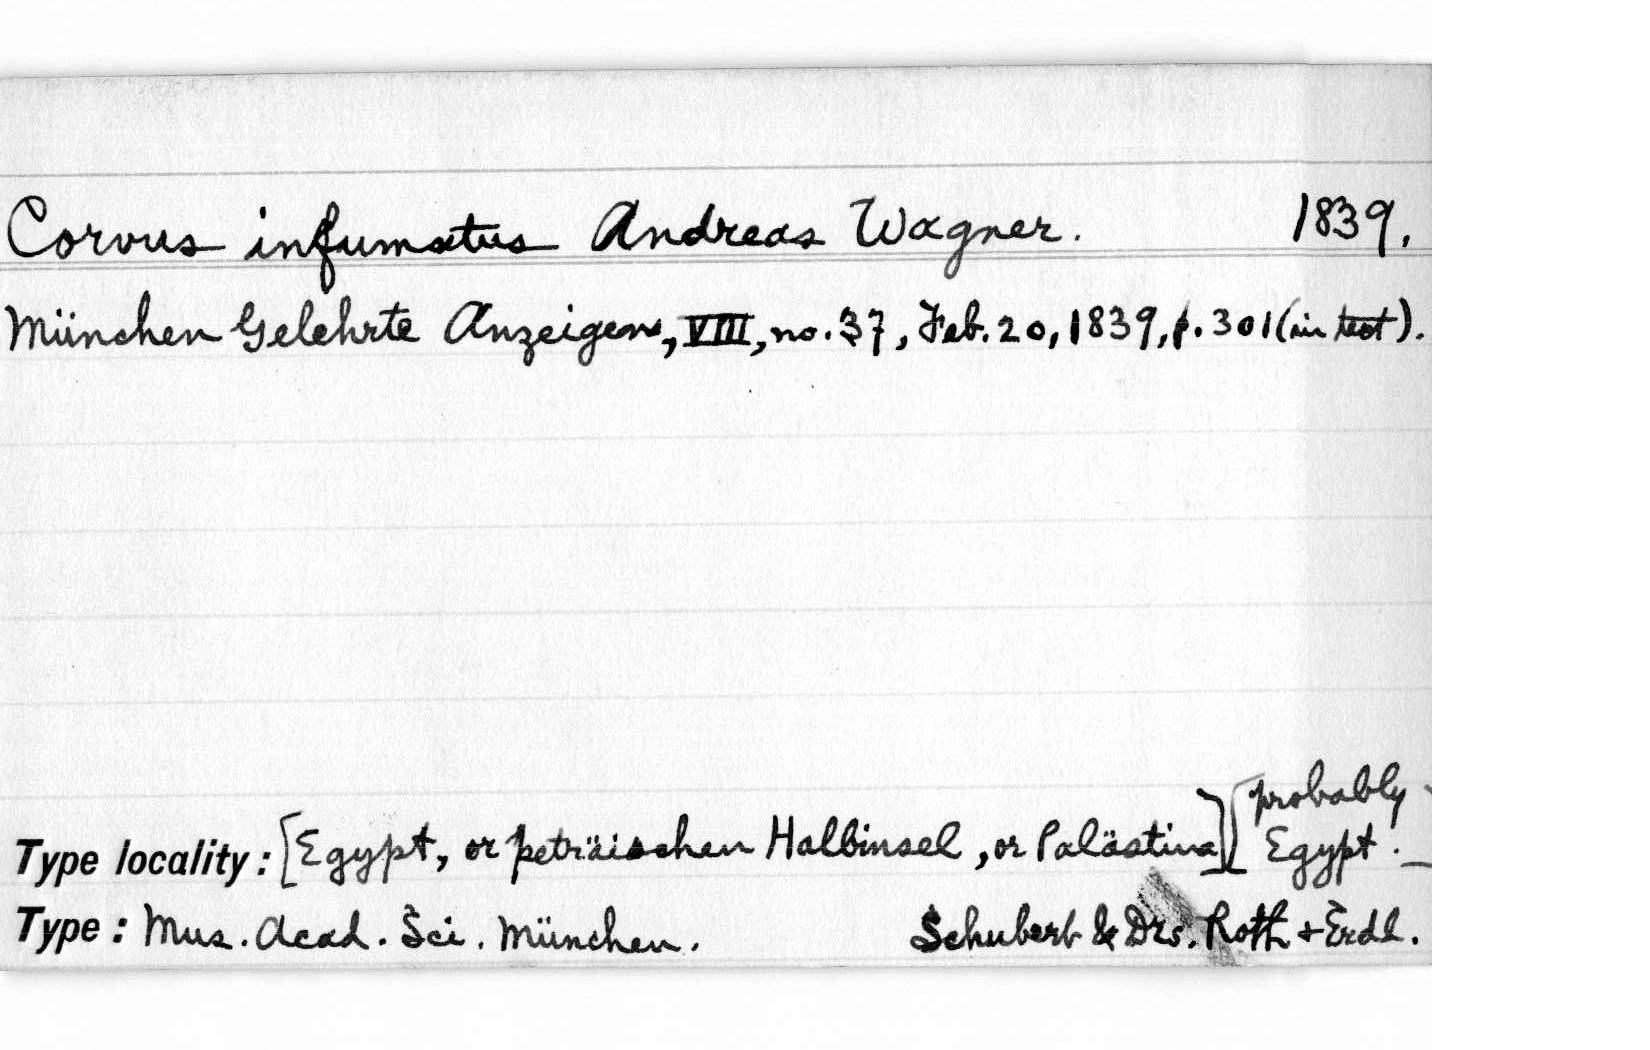 Corvus infumatus Andreas Wagner. 1839.
München Gelehrte Anzeigen, VIII, no. 37, Feb. 20, 1839, p. 301 (in text).
Type locality: [Egypt, or peträischen Halbinsel, or Palästina] [probably Egypt.
Type: Mus. Acad. Sci. München. Schubert & Drs. Roth + Erdl.